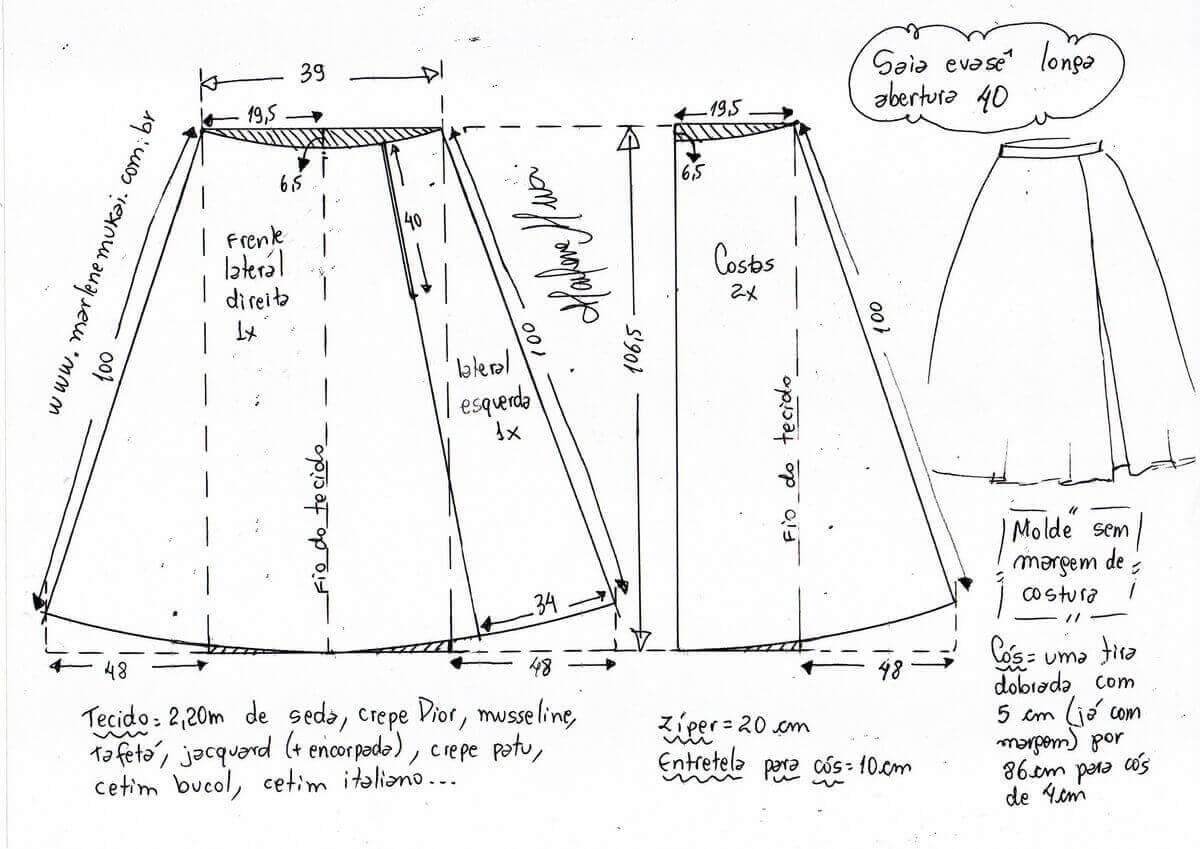 Saia evasê longa
abertura 40
www.marlenemukai.com.br
39
19,5
6,5
100
Frente
lateral
direita
1x
40
Fio do tecido
lateral
esquerda
1x
100
34
48
48
Marlene Mukai
106,5
19,5
6,5
Costas
2x
Fio do tecido
100
48
"Molde" sem
margem de
costura
Cós = uma tira
dobrada com
5 cm (já com
margem) por
86 cm para cós
de 4 cm
Tecido = 2,20m de seda, crepe Dior, musseline,
tafetá, jacquard (+ encorpada), crepe patu,
cetim bucol, cetim italiano...
Zíper = 20 cm
Entretela para cós = 10 cm